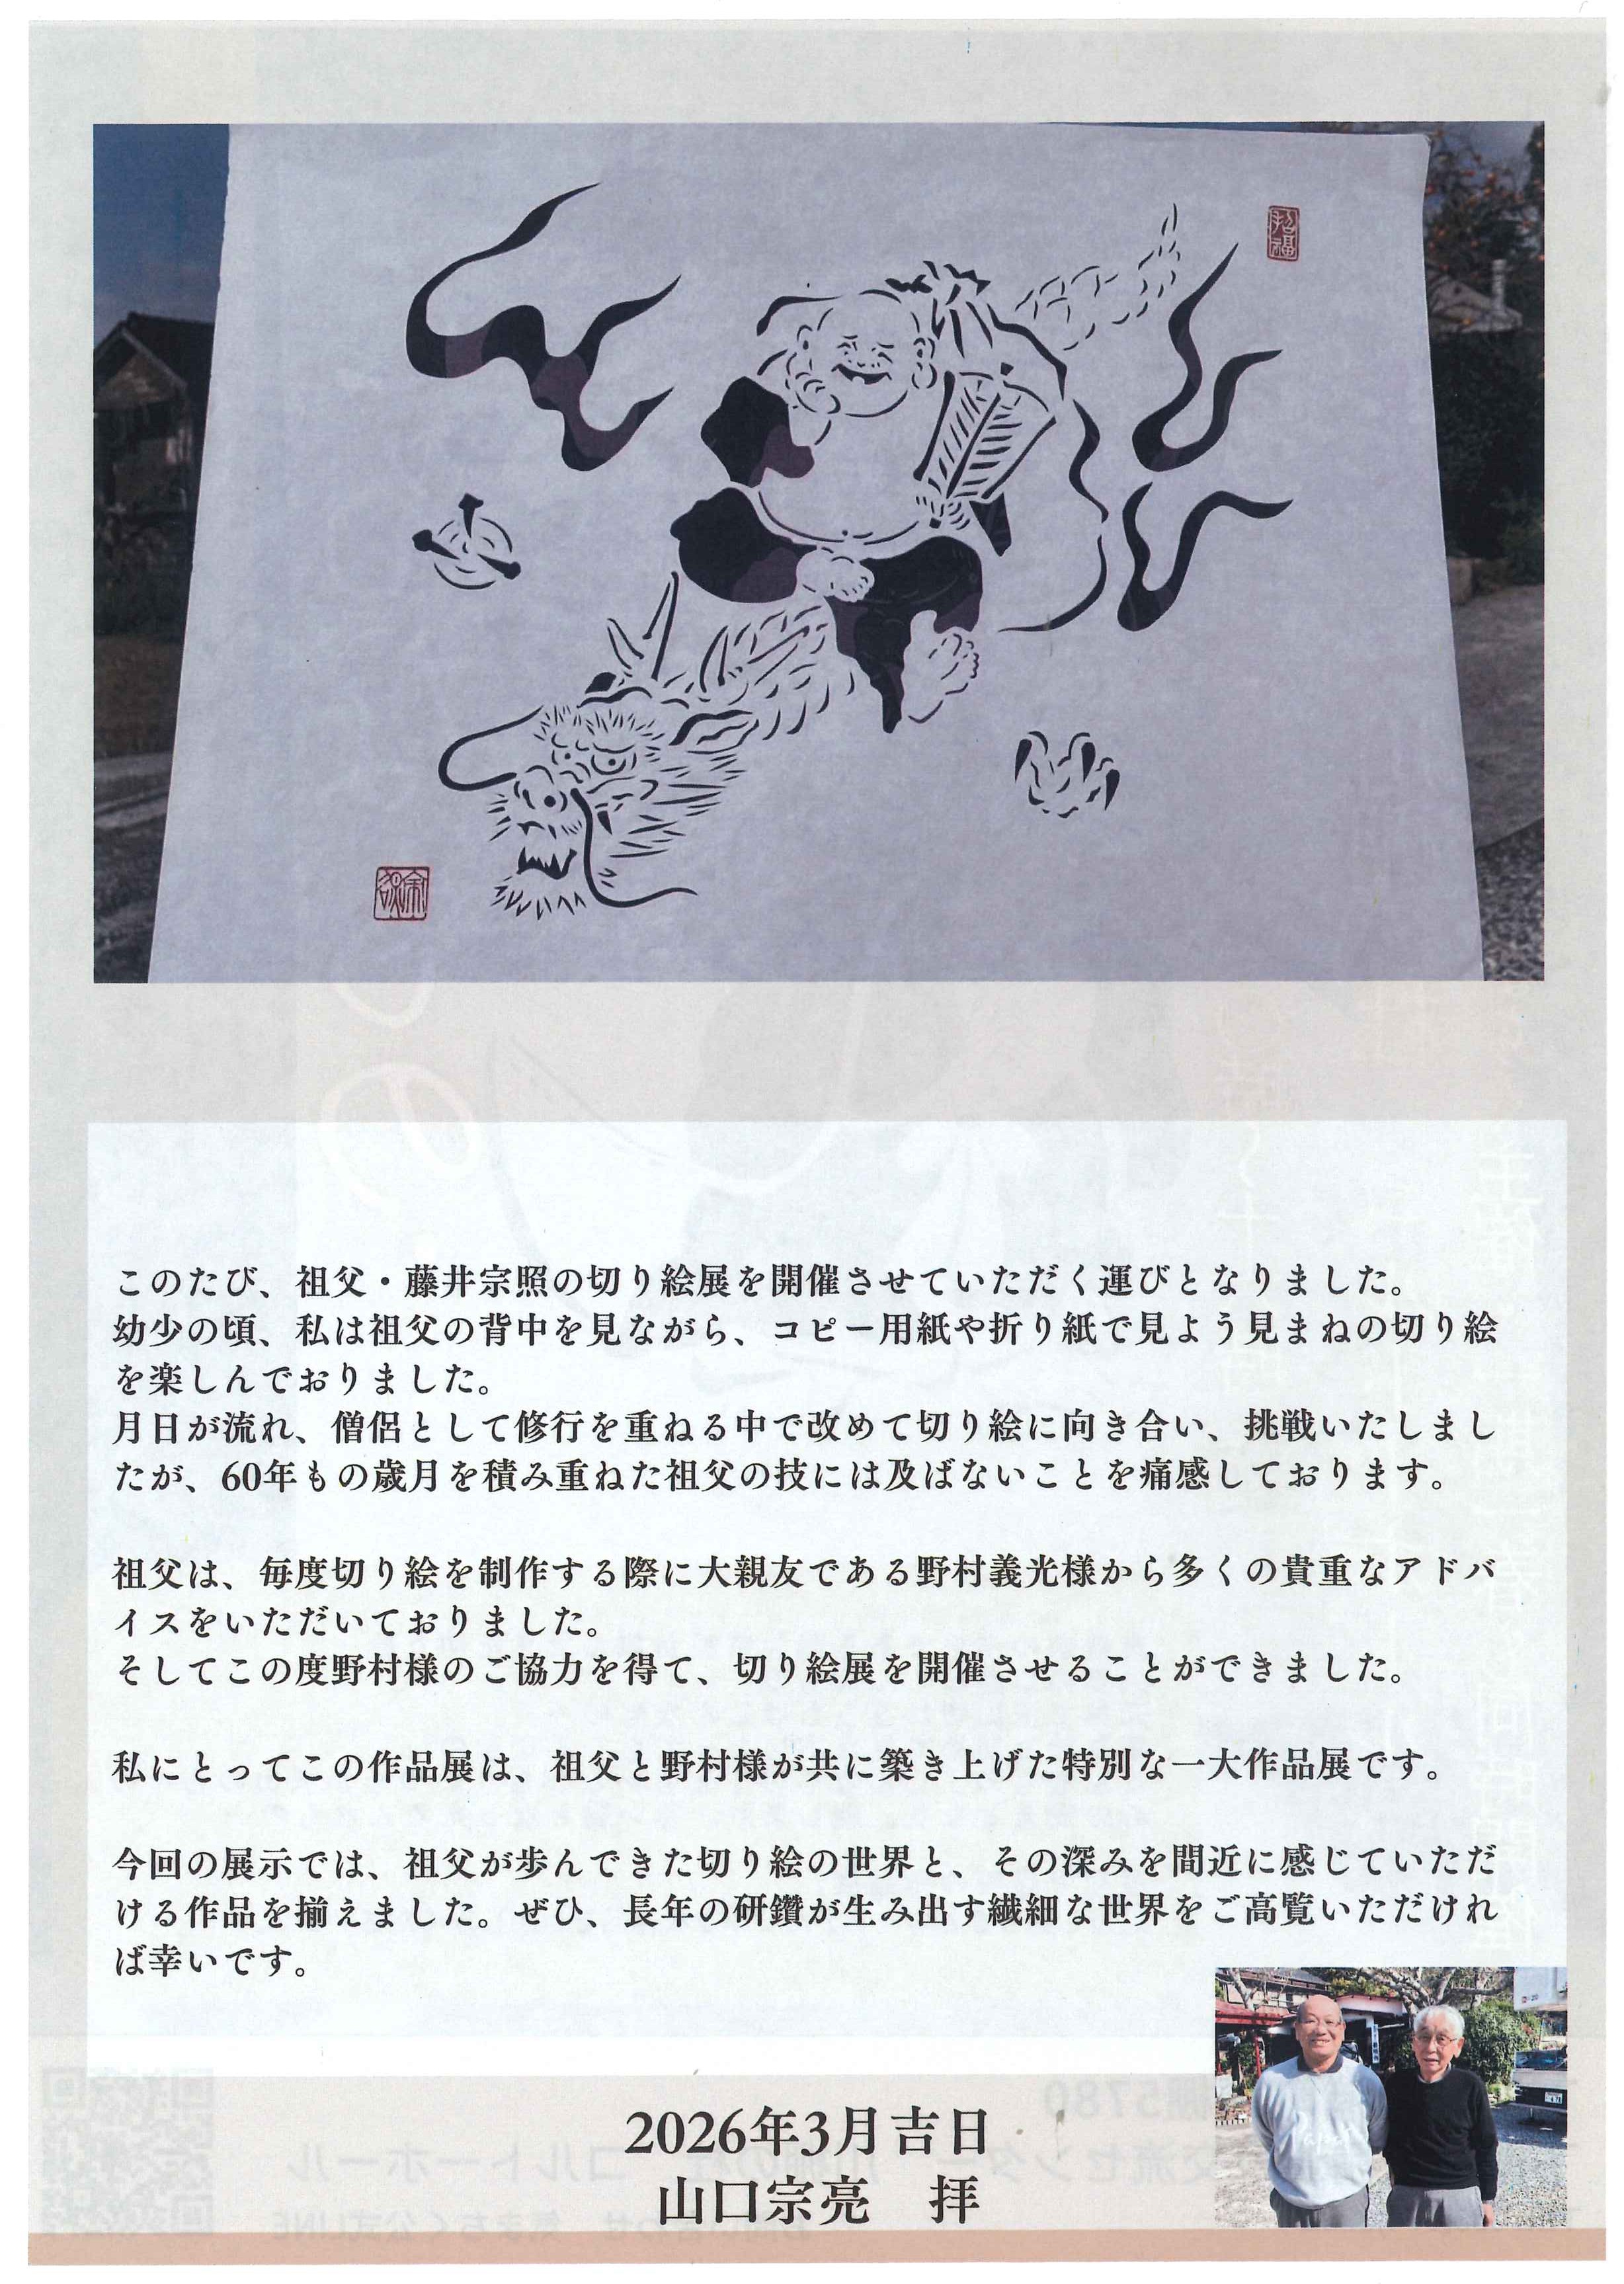 招福
このたび、祖父・藤井宗照の切り絵展を開催させていただく運びとなりました。
幼少の頃、私は祖父の背中を見ながら、コピー用紙や折り紙で見よう見まねの切り絵
を楽しんでおりました。
月日が流れ、僧侶として修行を重ねる中で改めて切り絵に向き合い、挑戦いたしまし
たが、60年もの歳月を積み重ねた祖父の技には及ばないことを痛感しております。
祖父は、毎度切り絵を制作する際に大親友である野村義光様から多くの貴重なアドバ
イスをいただいておりました。
そしてこの度野村様のご協力を得て、切り絵展を開催させることができました。
私にとってこの作品展は、祖父と野村様が共に築き上げた特別な一大作品展です。
今回の展示では、祖父が歩んできた切り絵の世界と、その深みを間近に感じていただ
ける作品を揃えました。ぜひ、長年の研鑽が生み出す繊細な世界をご高覧いただけれ
ば幸いです。
2026年3月吉日
山口宗亮　拝